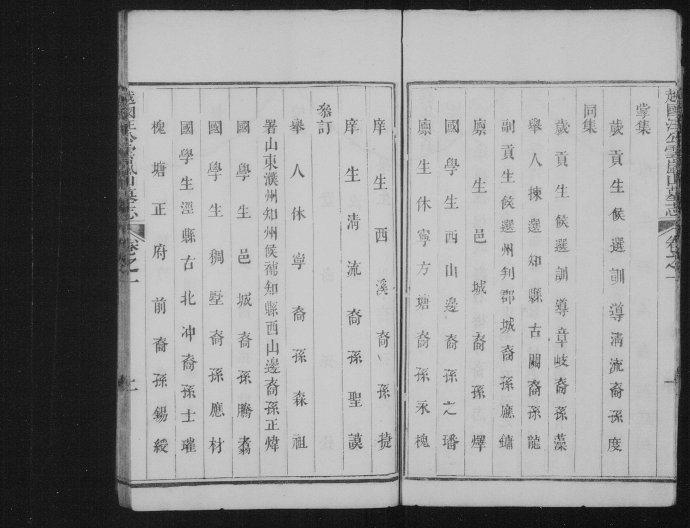 越國汪公雲嵐山墓志 卷之一 一
掌集
歲貢生候選訓導清流裔孫度
同集
歲貢生候選訓導章岐裔孫藻
舉人揀選知縣古關裔孫龍
副貢生候選州判郡城裔孫應鏞
廩生邑城裔孫燡
國學生西山邊裔孫之璠
廩生休寧方塘裔孫永槐
庠生西溪裔孫捷
庠生清流裔孫聖謨
參訂
舉人休寧裔孫森祖
署山東濮州知州候補知縣西山邊裔孫正煒
國學生邑城裔孫騰翥
國學生稠墅裔孫應材
國學生涇縣古北冲裔孫士璀
槐塘正府前裔孫錫綬
越國汪公雲嵐山墓志 卷之一 二